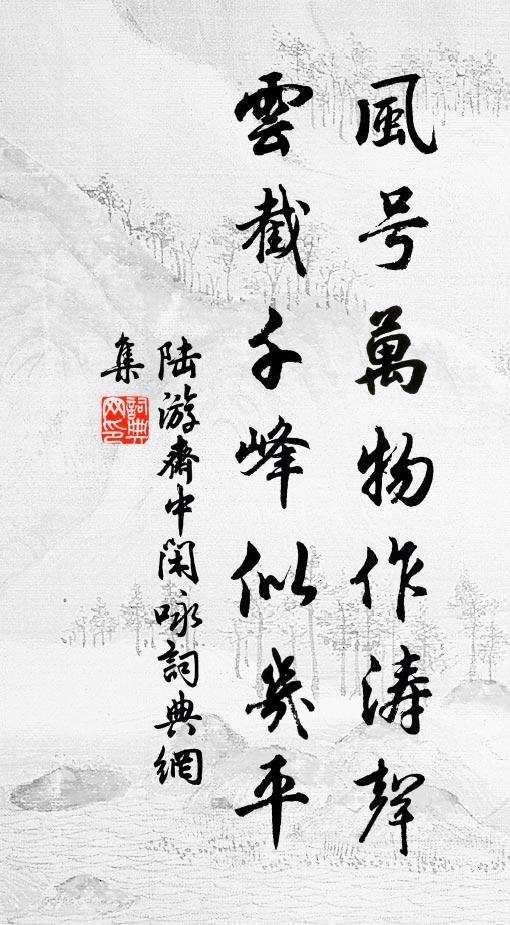 風号萬物作濤聲
雲截千峰似幾平
陸游齋中閑咏詞典網
集
詞典
网印